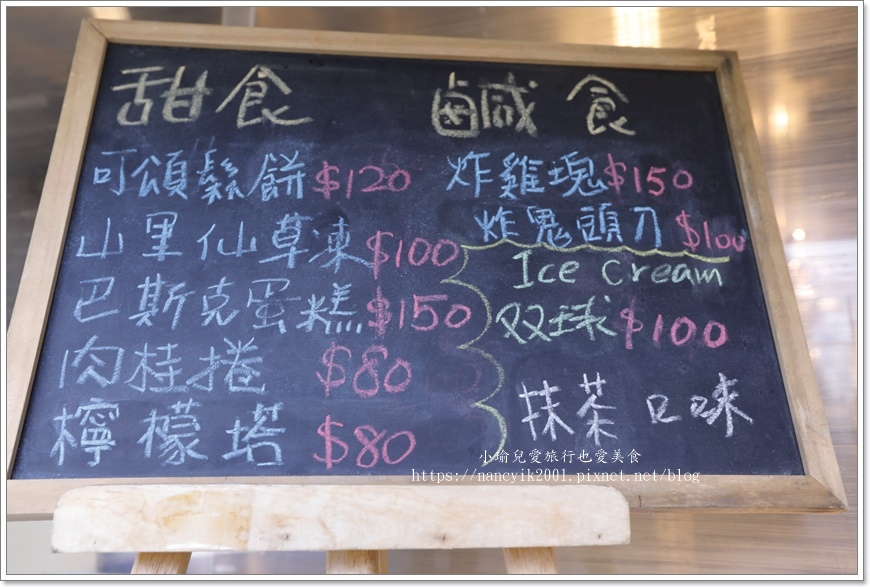 甜食
叮頌鬆餅 $120
山里仙草凍 $100
巴斯克蛋糕 $150
肉桂捲 $80
檸檬塔 $80
鹹食
炸雞塊 $150
炸鬼頭刀 $100
Ice Cream
双球 $100
抹茶口味
小瑜兒愛旅行也愛美食
https://nancyik2001.pixnet.net/blog